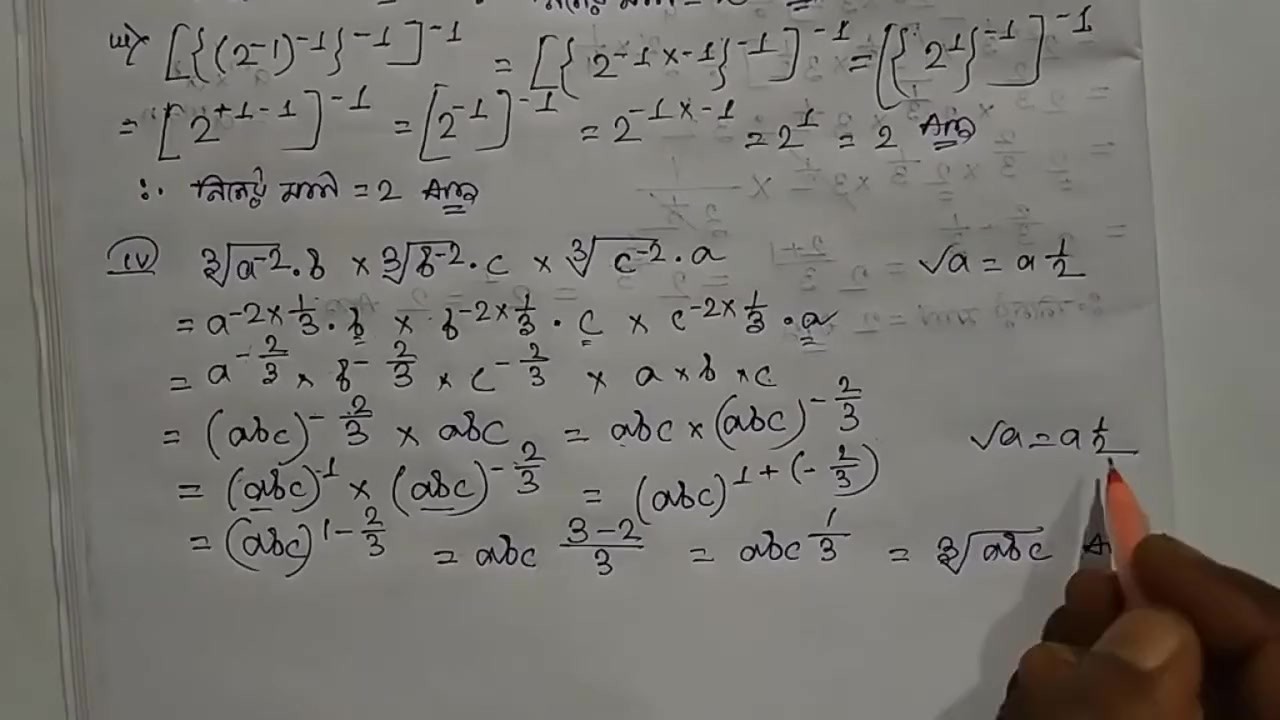 [{(2⁻¹)⁻¹}⁻¹]⁻¹ = [{2⁻¹ ˣ ⁻¹}⁻¹]⁻¹ = [{2¹}⁻¹]⁻¹
= [2⁺¹⁻¹]⁻¹ = [2⁻¹]⁻¹ = 2⁻¹ ˣ ⁻¹ = 2¹ = 2 Ans
∴ নির্ণেয় = 2 Ans
(iv) ∛a⁻²·b × ∛b⁻²·c × ∛c⁻²·a √a = a^1/2
= a^-2×1/3 · b × b^-2×1/3 · c × c^-2×1/3 · a
= a^-2/3 × b^-2/3 × c^-2/3 × a × b × c
= (abc)^-2/3 × abc = abc × (abc)^-2/3 √a = a^1/2
= (abc)^1 × (abc)^-2/3 = (abc)^1+(-2/3)
= (abc)^1-2/3 = abc^3-2/3 = abc^1/3 = ∛abc A